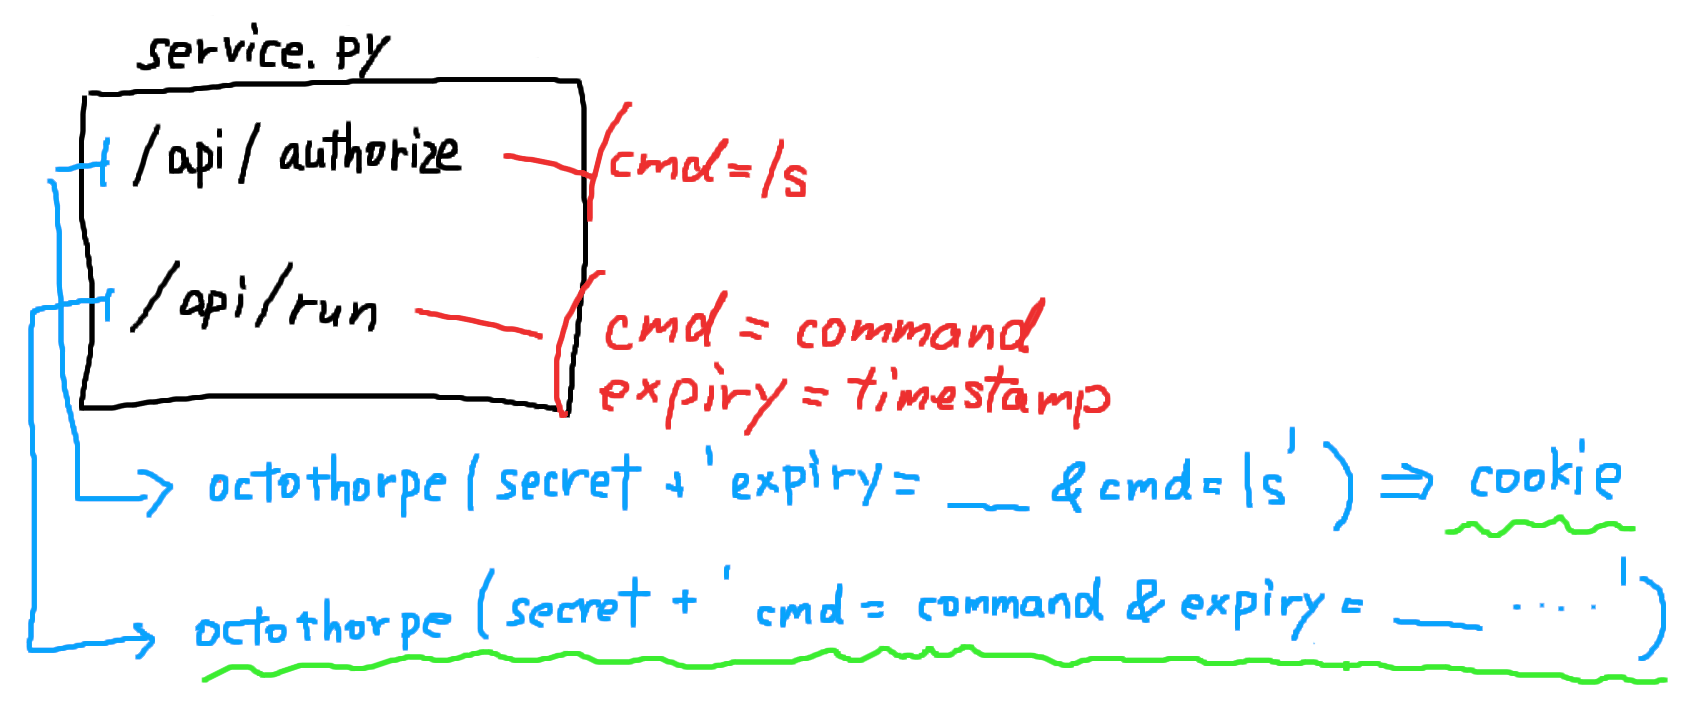 service.py
/api/authorize
cmd=ls
/api/run
cmd = command
expiry = timestamp
octothorpe(secret + 'expiry= __ & cmd=ls') ⇒ cookie
octothorpe(secret + 'cmd = command & expiry = __ ....')